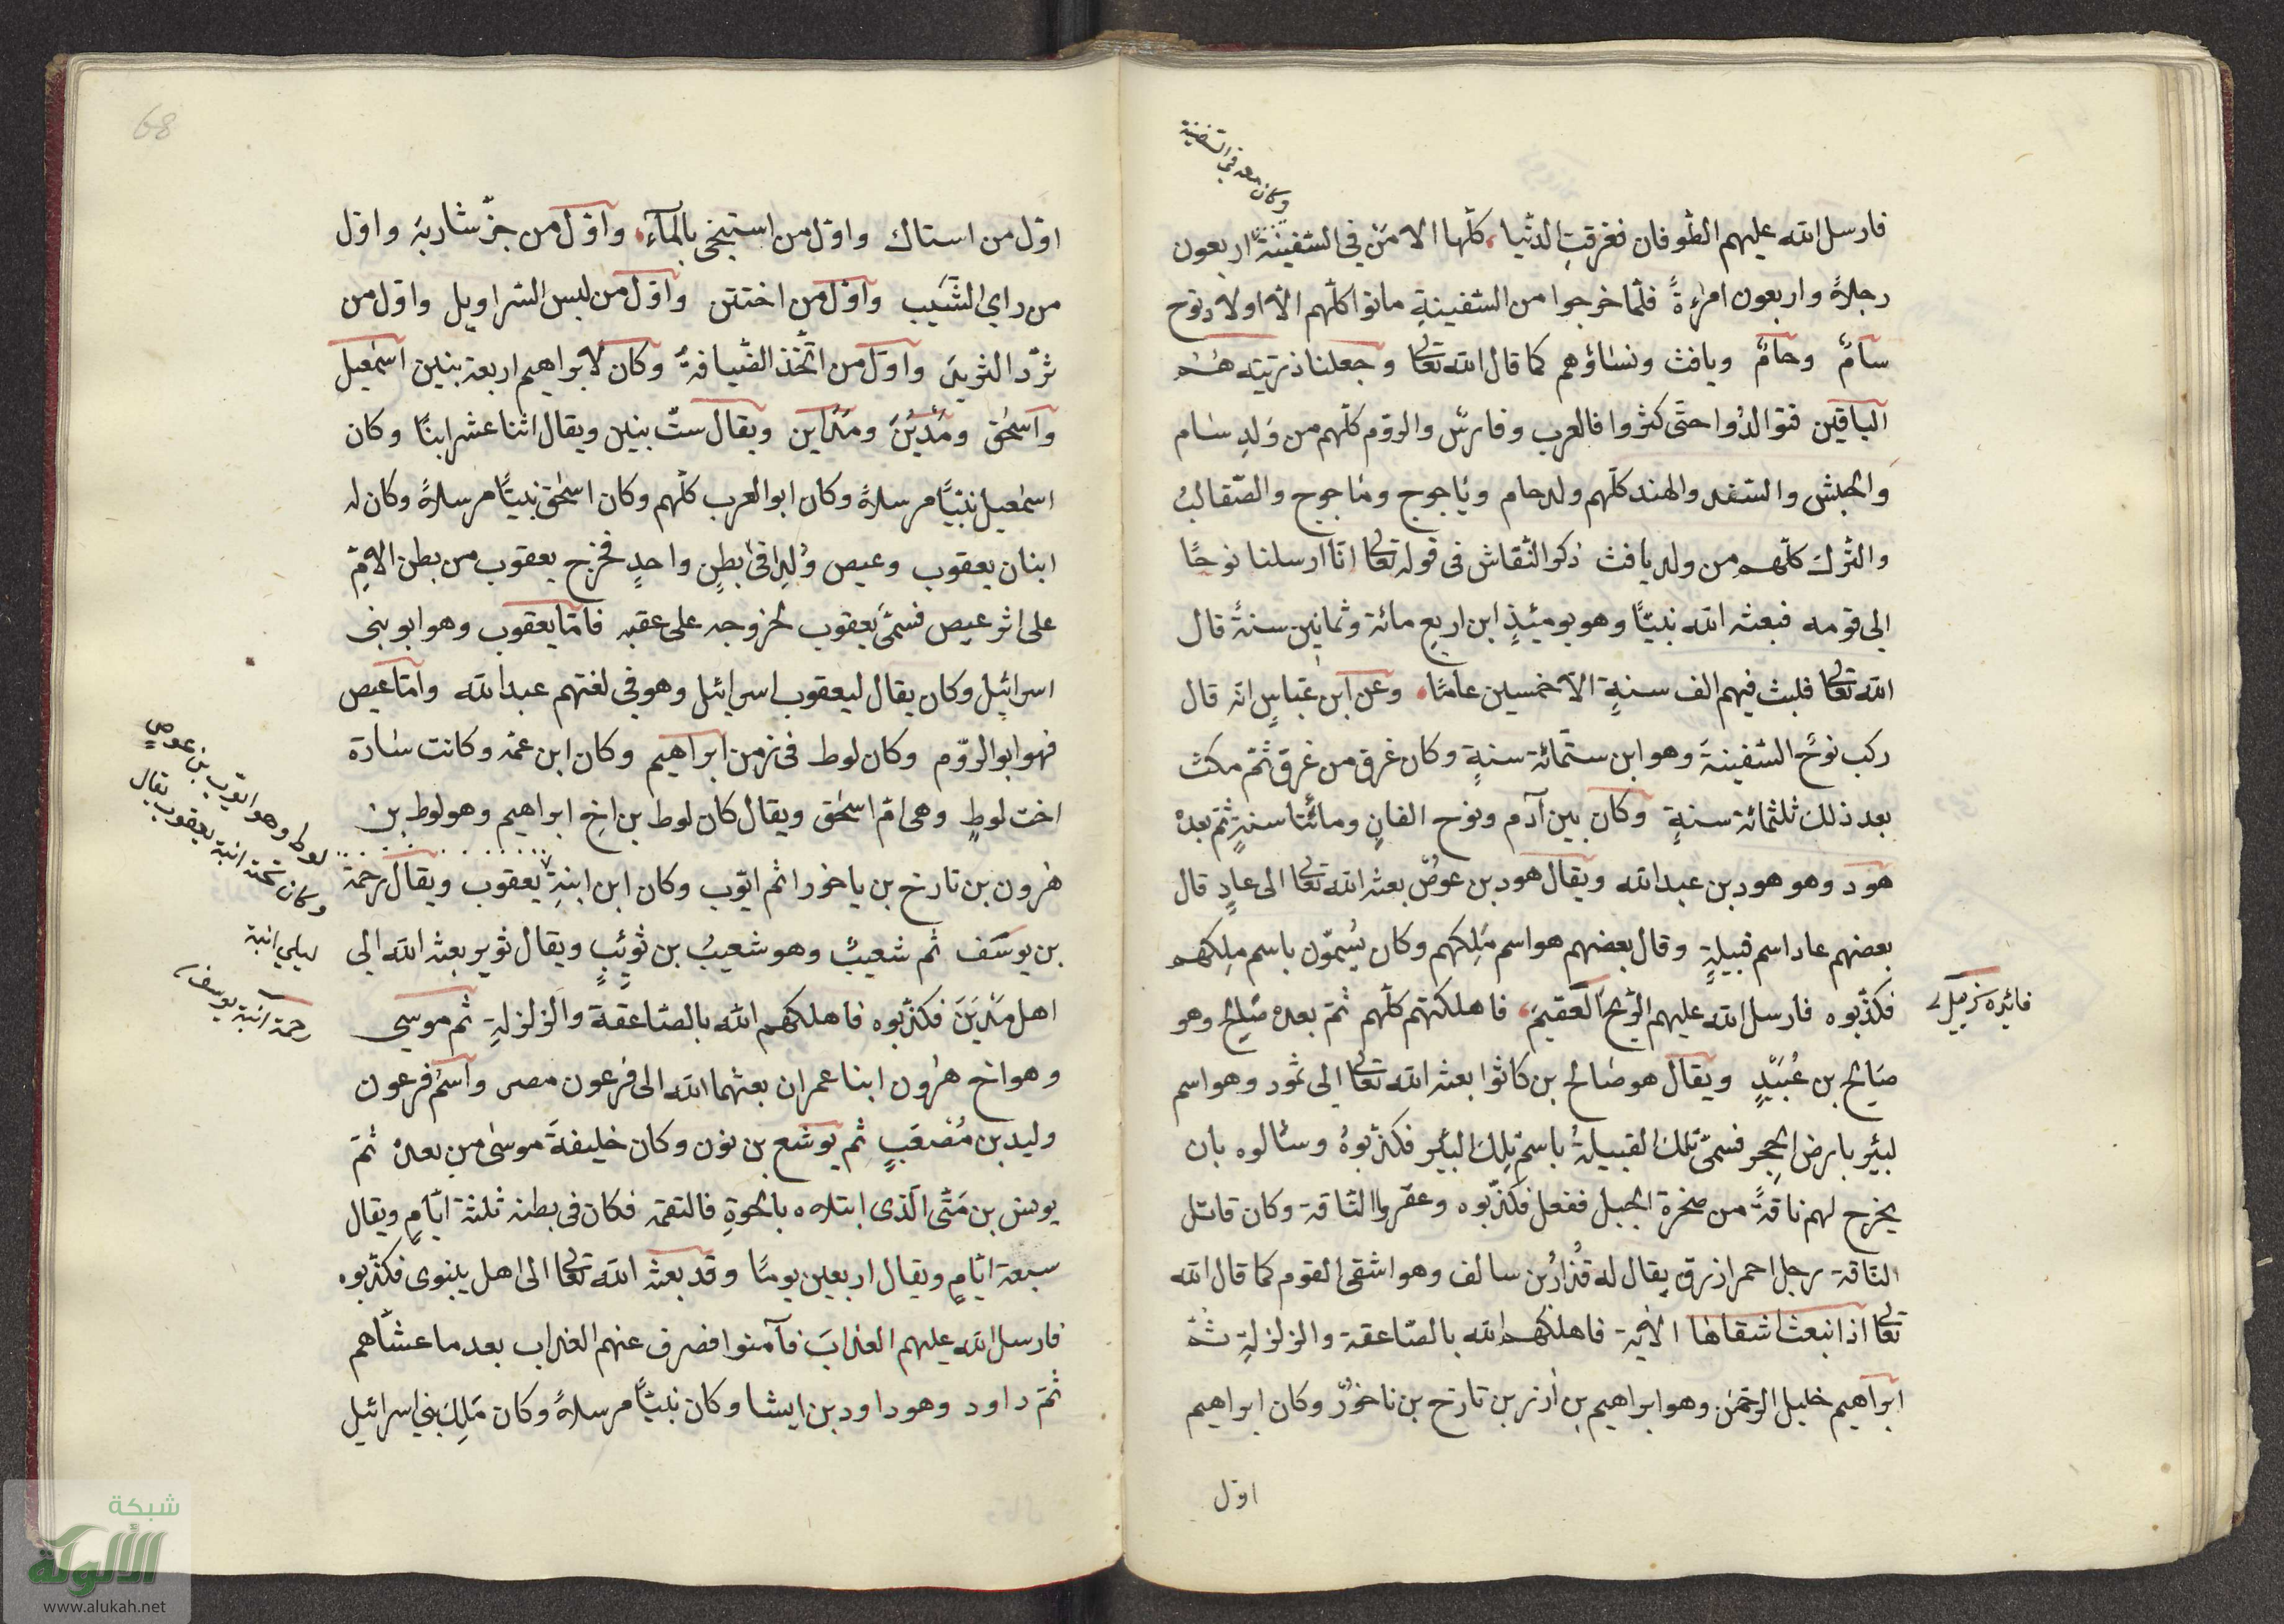 وكان معه في السفينة
فارسل الله عليهم الطّوفان فغرقتِ الدنّيا كلّها الا مَنْ في السّفينة اربعون
رجلاً واربعون امراءةً فلمّا خرجوا من السّفينةِ ماتوا كلّهم الاّ اولاد نوح
سامٌ وحامٌ ويافث ونساؤهم كما قال الله تعالى وجعلنا ذريّته هم
الباقين فتوالدُوا حتّى كثروا فالعرب وفارسُ والروّم كلّهم من وَلدِ سام
والحبش والسّند والهند كلّهم ولد حام وياجوج وماجوج والصّقالبُ
والتّرك كلّهم من ولد يافث ذكر النّقاش في قوله تعالى انّا ارسلنا نوحًا
الي قومه فبعثه الله نبيّاً وهو يومئذٍ ابن اربع مائة وثمانين سنةً قال
الله تعالى فلبث فيهم الف سنةٍ الاّ خمسين عامًا وعن ابن عبّاسٍ انّه قال
ركب نوحٌ السّفينةَ وهو ابن ستّمائة سنةٍ وكان غرق من غرق ثمّ مكث
بعد ذلك ثلثمائة سنةٍ وكان بين آدم ونوح الفانِ ومائتا سنةٍ ثمّ بعدهْ
هود وهو هود بن عبد الله ويقال هود بن عوصٌ بعثه الله تعالى الى عادٍ قال
بعضهم عاد اسم قبيلةٍ وقال بعضهم هو اسم مَلِكهم وكان يُسموّن باسم ملِكهم
فكذّبوه فارسل الله عليهم الرّيحَ العَقيمَ فاهلكتهم كلّهم ثمّ بعده صَالِح وهو
صَالِح بن عُبَيْدٍ ويقال هو صَالح بن كاثوا بعثه الله تعالى الي ثمود وهو اسم
لبئرٍ بارض الحِجر فسمّى تلك القبيلةُ باسم تِلك البئر فكذّبوهُ وسئالوه بان
يخرج لهم ناقةً من صخرة الجبل ففعل فكذّبوه وعقروا النّاقة وكان قاتل
النّاقة رجل احمر ازرق يقال له قُذارُ بن سالف وهو اشقى القوم كما قال الله
تعالى اذ انبعث اشقاها الآية فاهلكهم الله بالصّاعقة والزلزلةِ ثمّ
ابراهيم خليل الرّحمن وهو ابراهيم بن اٰزر بن تارخ بن ناخورٌ وكان ابراهيم
اوّل
68
اوّل من استاك واوّل من استنجى بالمآءِ واوّل من جزّ شاربهُ واوّل
من راي الشَّيب واوّل من اختتن واوّل من لبس السّراويل واوّل من
ثرّد الثّريدَ واوّل من اتّخذ الضّيافةَ وكان لابراهيم اربعة بنين اسمٰعيل
واسحٰق ومَدْيَنَ ومَدَاين ويقال ستّ بنين ويقال اثنا عشر ابنًا وكان
اسمٰعيل نبيّاً مرسلاً وكان ابو العرب كلّهم وكان اسحٰق نبيّاً مرسلاً وكان له
ابنان يعقوب وعيص وُلِدا في بطنٍ واحدٍ فخرج يعقوب من بطن الامِّ
على اثر عيص فسمّى يَعقوب لخروجه على عقبه فامّا يعقوب وهو ابو بني
اسرائِل وكان يقال ليعقوب اسرائيل وهو في لغتهم عبد الله وامّا عيص
فهو ابو الروّم وكان لوط في زمن ابراهيم وكان ابن عمّه وكانت سارة
اخت لوطٍ وهي امّ اسحٰق ويقال كان لوط بن اخِ ابراهيم وهو لوط بن
هٰرون بن تارخ بن ياخورا ثم ايّوب وكان ابن ابنةِ يعقوب ويقال رحمة
بن يوسَف ثم شعيبٌ وهو شعيبُ بن ثويَبٍ ويقال ثوير بعثه الله الي
اهل مَدْيَنَ فكذّبوه فاهلكهم الله بالصّاعقة والزلزلةِ ثم موسي
وهو اخ هٰرون ابنا عمران بعثهما الله الى فرعون مصر واسْم فرعون
وليد بن مُصْعَبٍ ثم يوشع بن نون وكان خليفةَ موسٰى من بعدهْ ثمّ
يونس بن مَتّى الّذى ابتلاه بالحوةِ فالتقمه فكان في بطنه ثلثة ايّامٍ ويقال
سبعة ايّامٍ ويقال اربعين يومًا وقد بعثه الله تعالى الى اهل نينوى فكذّبوه
فارسل الله عليهم العذابَ فآمنوا فصرف عنهم العذاب بعد ما عشّاهم
ثمّ داود وهو داود بن ايشا وكان نبيّاً مرسلاً وكان مَلِكَ بني اسرائيل
وهو ايّوب بن عوص
وكان تحته ابنة يعقوب يقال
ليلي ابنة
رحمة ابنة يوسف
شبكة
الألوكة
www.alukah.net